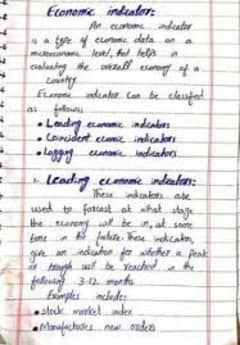 Economic indicator:
An economic indicator
is a type of economic data on a
microeconomic level, that helps in
evaluating the overall economy of a
country.
Economic indicator can be classified
as follows
• Leading economic indicators
• Coincident economic indicators
• Lagging economic indicators
1. Leading economic indicators:
These indicators are
used to forcast at what stage
the economy will be in, at some
time in the future. These indicators,
give an indication for whether a peak
or trough will be reached in the
following 3-12 months.
Examples include:
• stock market index
• Manufactures new orders